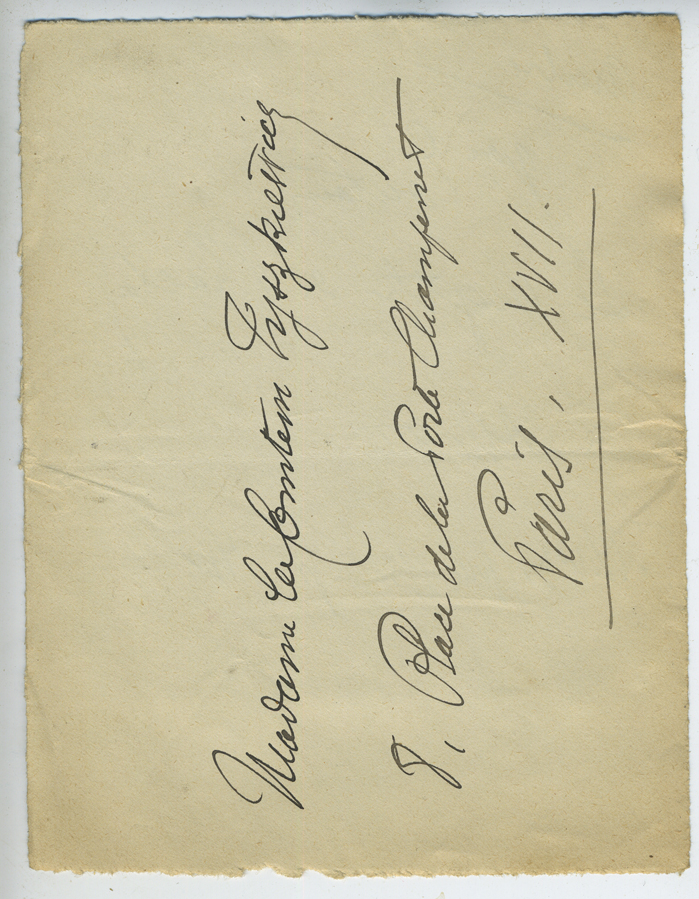 Madame la Comtesse Tyszkiewicz
8, Place de la Porte Champerret
Paris, XVII.